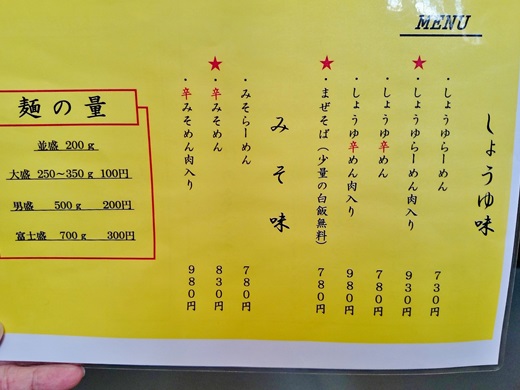 MENU
しょうゆ味
・しょうゆらーめん 730円
★・しょうゆらーめん肉入り 930円
・しょうゆ辛めん 780円
・しょうゆ辛めん肉入り 980円
★・まぜそば(少量の白飯無料) 780円
みそ味
・みそらーめん 780円
★・辛みそめん 830円
・辛みそめん肉入り 980円
麺の量
並盛 200g
大盛 250～350g 100円
男盛 500g 200円
富士盛 700g 300円